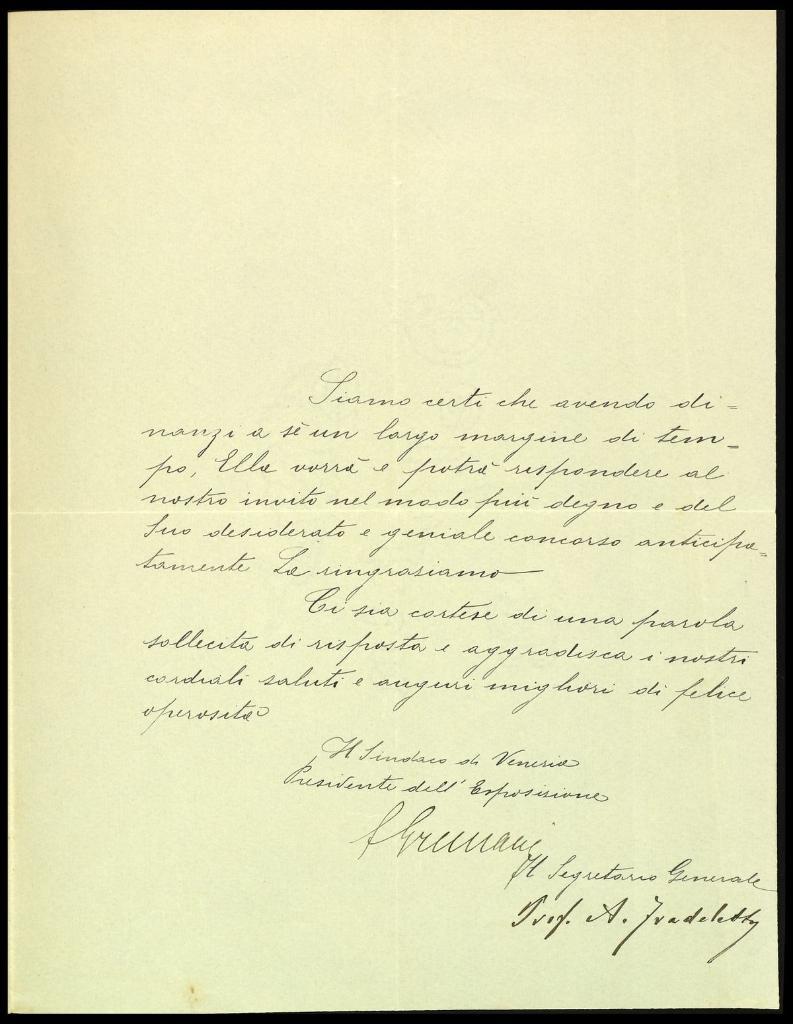 Siamo certi che avendo di=
nanzi a sè un largo margine di tem=
po, Ella vorrà e potrà rispondere al
nostro invito nel modo più degno e del
Suo desiderato e geniale concorso anticipa=
tamente La ringraziamo
Ci sia cortese di una parola
sollecita di risposta e aggradisca i nostri
cordiali saluti e auguri migliori di felice
operosità
Il Sindaco di Venezia
Presidente dell'Esposizione
F Grimani
Il Segretario Generale
Prof. A. Fradeletto